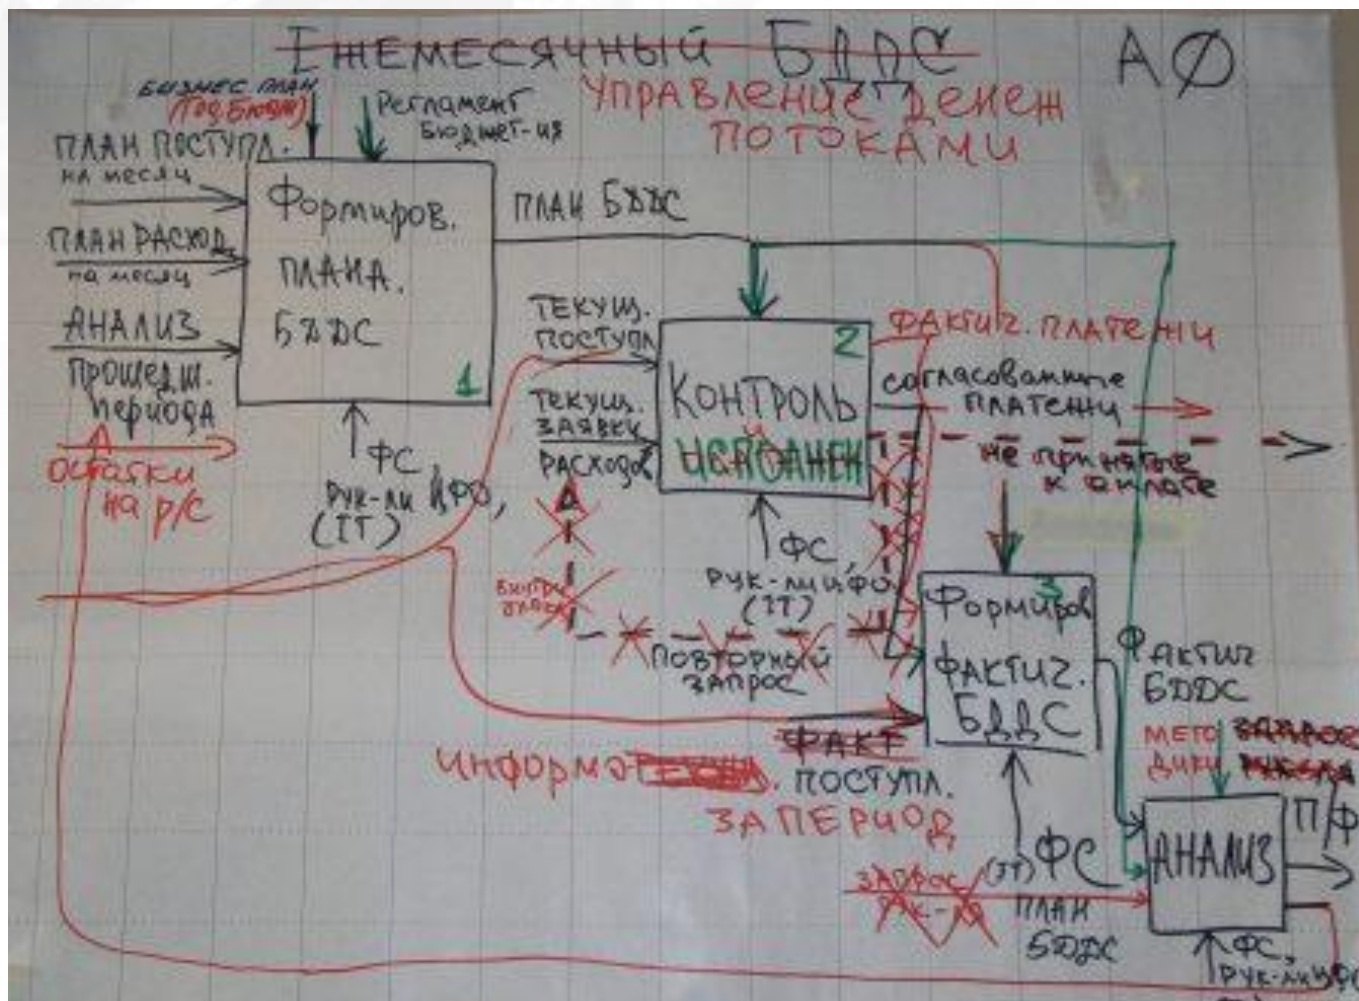 ЕЖЕМЕСЯЧНЫЙ БДДС
АØ
УПРАВЛЕНИЕ ДЕНЕЖ
ПОТОКАМИ
БИЗНЕС ПЛАН
(ГОД.БЮДЖ)
РЕГЛАМЕНТ
БЮДЖЕТ-ИЯ
ПЛАН ПОСТУПЛ.
НА МЕСЯЦ
ПЛАН РАСХОД.
НА МЕСЯЦ
АНАЛИЗ
ПРОШЕДШ.
ПЕРИОДА
ОСТАТКИ
НА Р/С
ФОРМИРОВ.
ПЛАНА.
БДДС
1
ФС,
РУК-ЛИ ЦФО,
(IT)
ПЛАН БДДС
ТЕКУЩ.
ПОСТУПЛ
ТЕКУЩ.
ЗАЯВКИ
РАСХОДОВ
2
КОНТРОЛЬ
ИСПОЛНЕН
ФАКТИЧ. ПЛАТЕЖИ
СОГЛАСОВАННЫЕ
ПЛАТЕЖИ
НЕ ПРИНЯТЫЕ
К ОПЛАТЕ
ФС,
РУК-ЛИ ЦФО
(IT)
ПОВТОРНЫЙ
ЗАПРОС
3
ФОРМИРОВ
ФАКТИЧ.
БДДС
ФАКТИЧ
БДДС
ФАКТ
ИНФОРМ
ПОСТУПЛ.
ЗА ПЕРИОД
(IT) ФС
ЗАПРОС
РУК-ЛЯ
ПЛАН
БДДС
МЕТО
ДИКИ
АНАЛИЗ
П/Ф
ФС,
РУК-ЛИ ЦФО